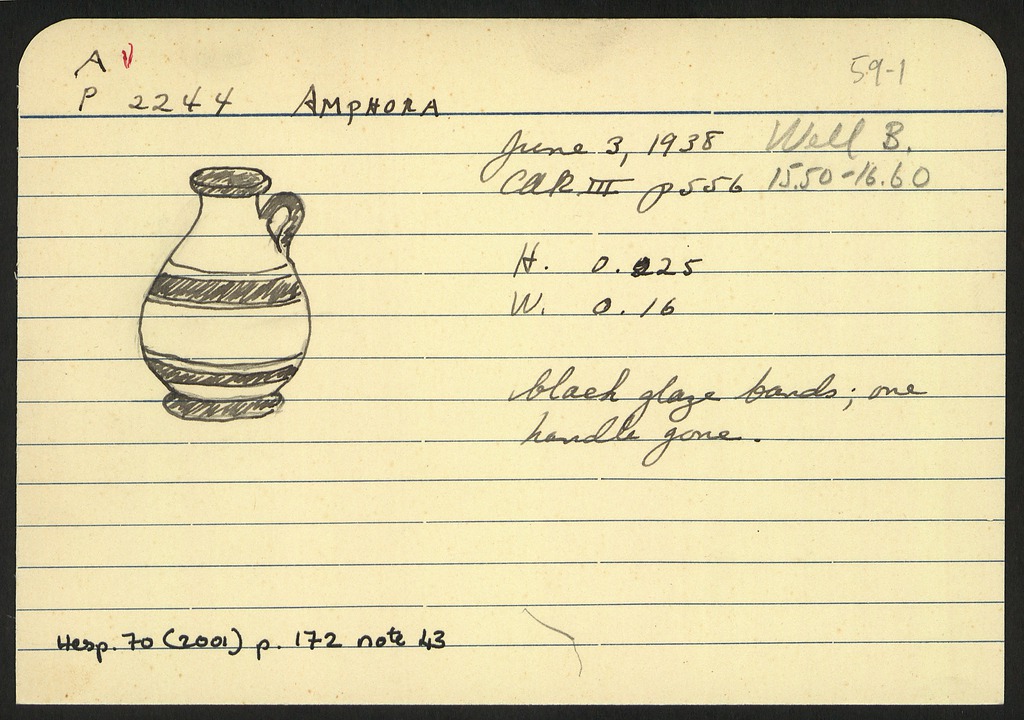 A
59-1
P 2244 AMPHORA
June 3, 1938 Well B.
CAR III p 556 15.50-16.60
H. 0.225
W. 0.16
black glaze bands; one
handle gone.
Hesp. 70 (2001) p. 172 note 43